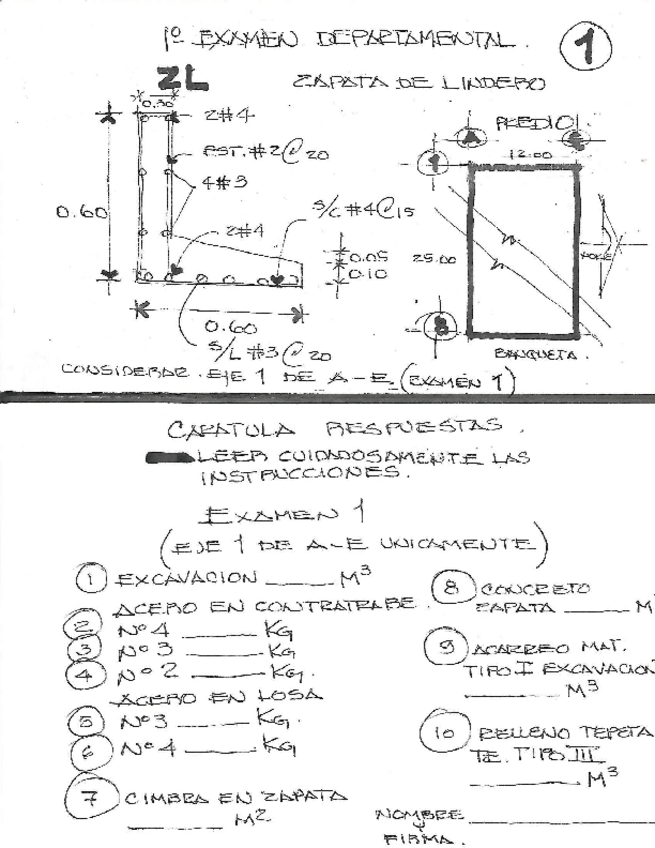 1º EXAMEN DEPARTAMENTAL.
1
ZL
ZAPATA DE LINDERO
0.30
2#4
EST. #2@20
4#3
0.60
S/C #4@15
2#4
0.05
0.10
0.60
S/L #3@20
PREDIO
A
E
1
12.00
25.00
8
BANQUETA.
CONSIDERAR EJE 1 DE A-E (EXAMEN 1)
CARATULA RESPUESTAS.
LEER CUIDADOSAMENTE LAS
INSTRUCCIONES.
EXAMEN 1
(EJE 1 DE A-E UNICAMENTE)
1 EXCAVACION ____ M3
ACERO EN CONTRATRABE.
2 Nº4 ____ KG
3 Nº3 ____ KG
4 Nº2 ____ KG.
ACERO EN LOSA
5 Nº3 ____ KG.
6 Nº4 ____ KG
7 CIMBRA EN ZAPATA
____ M2
8 CONCRETO
ZAPATA ____ M
9 ACARREO MAT.
TIPO I EXCAVACION
____ M3
10 RELLENO TEPETA
TE. TIPO III
____ M3
NOMBRE ____
Y
FIRMA.